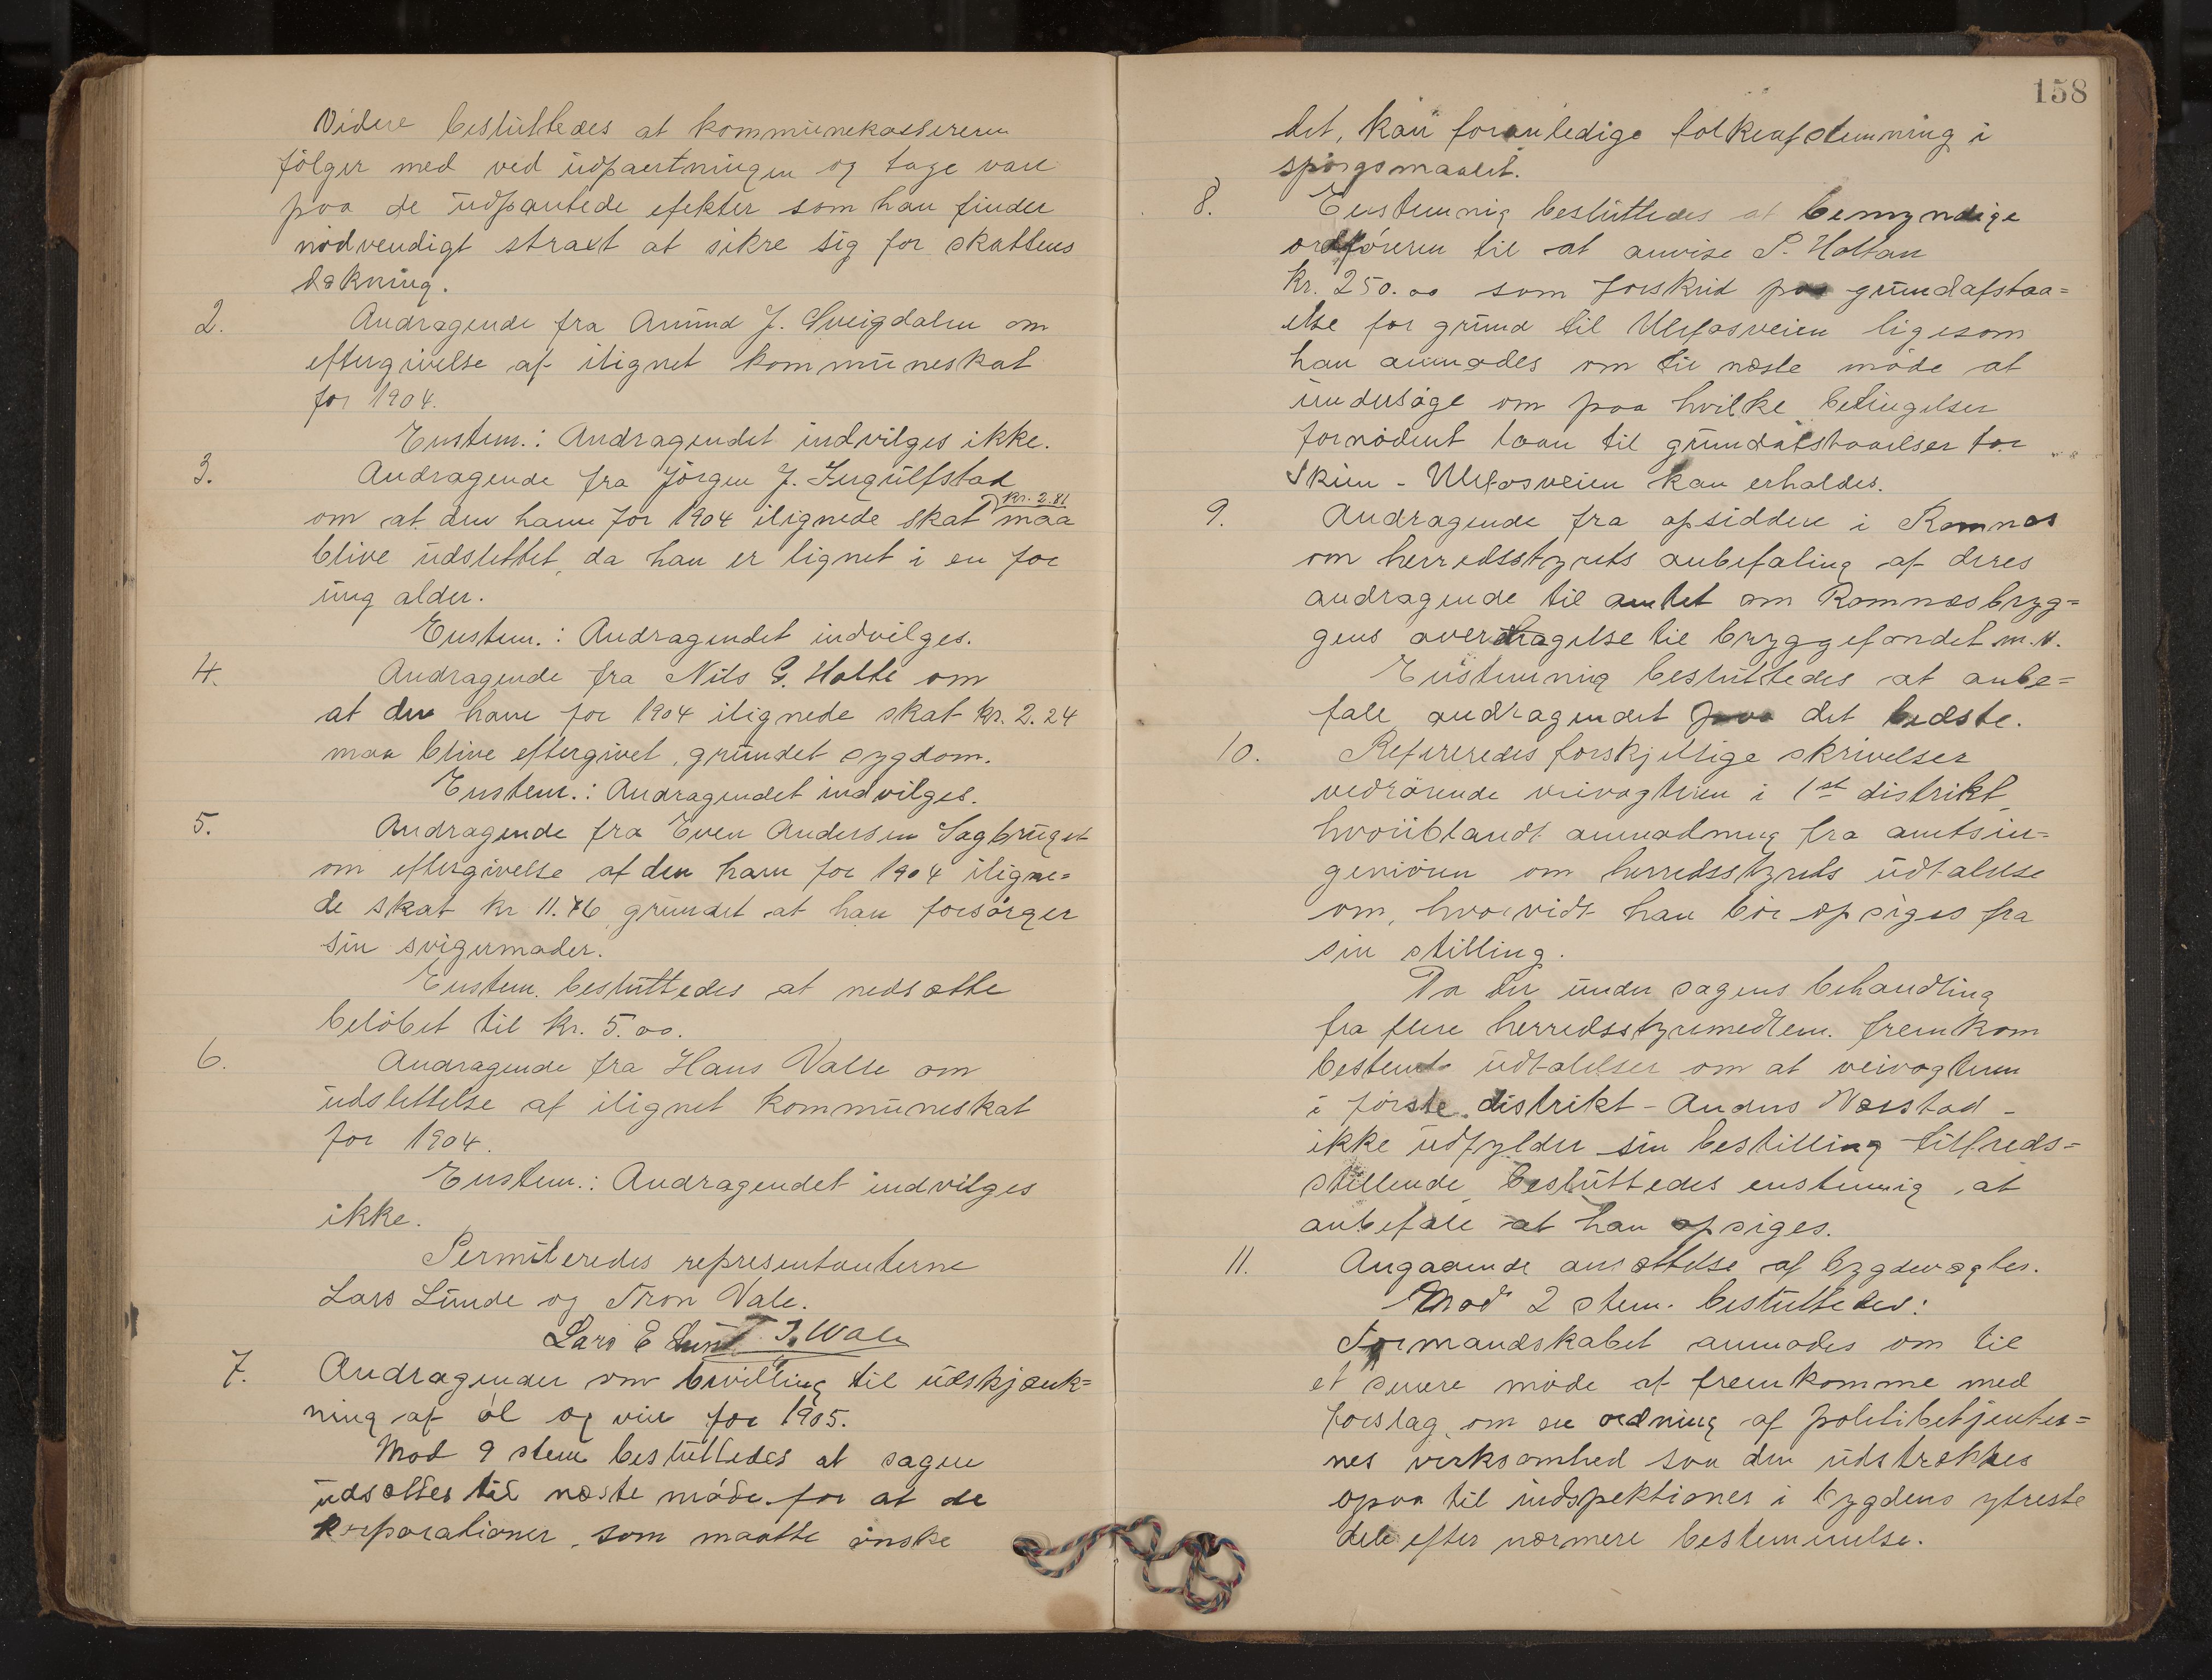 Videre besluttedes at kommunekassereren
følger med ved udpantningen og tage vare
paa de udpantede efekter som han finder
nødvendigt straxt at sikre sig for skattens
dækning.
2. Andragende fra Amund J. Sveigdalen om
eftergivelse af ilignet kommuneskat
for 1904.
Enstem.: Andragendet indvilges ikke.
3. Andragende fra Jörgen J. Ingulfstad
kr. 2.81
om at den ham for 1904 ilignede skat maa
blive udslettet, da han er lignet i en for
ung alder.
Enstem.: Andragendet indvilges.
4. Andragende fra Nils G. Holte om
at den ham for 1904 ilignede skat kr. 2.24
maa blive eftergivet, grundet sygdom.
Enstem.: Andragendet indvilges.
5. Andragende fra Even Andersen Sagbruget
om eftergivelse af den ham for 1904 iligne=
de skat kr 11.76 grundet at han forsørger
sin svigermoder.
Enstem. besluttedes at nedsætte
beløbet til kr. 5.00.
6. Andragende fra Hans Valle om
udslettelse af ilignet kommuneskat
for 1904.
Enstem.: Andragendet indvilges
ikke.
Permiteredes representanterne
Lars Lunde og Tron Vale.
Lars E Lund T. Wale
7. Andragender om bevilling til udskjænk=
ning af øl og vin for 1905.
Mod 9 stem besluttedes at sagen
udsættes til næste møde for at de
korporationer, som maatte ønske
158
det, kan foranledige folkeafstemning i
spørgsmaalet.
8. Enstemmig besluttedes at bemyndige
ordføreren til at anvise P. Holtan
Kr. 250.00 som forskud paa grundafstaa=
else for grund til Ulefosveien ligesom
han anmodes om til næste møde at
undersøge om paa hvilke betingelser
fornødent laan til grundafstaaelser for
Skien - Ulefosveien kan erholdes.
9. Andragende fra opsiddere i Romnes
om herredsstyrets anbefaling af deres
andragende til amtet om Romnesbryg=
gens overdragelse til bryggefondet m.v.
Enstemmig besluttedes at anbe=
fale andragendet paa det bedste.
10. Refereredes forskjellige skrivelser
vedrørende veivogteren i 1st distrikt,
hvoriblandt anmodning fra amtsin=
geniøren om herredsstyrets udtalelse
om, hvorvidt han bør opsiges fra
sin stilling.
Da der under sagens behandling
fra flere herredsstyremedlem. fremkom
bestemte udtalelser om at veivogteren
i første distrikt - Anders Næsstad -
ikke udfylder sin bestilling tilfreds=
stillende besluttedes enstemmig, at
anbefale at han opsiges.
11. Angaaende ansættelse af bygdevægter.
Mod 2 stem. besluttedes:
Formandskabet anmodes om til
et senere møde at fremkomme med
forslag om en ordning af politibetjenter=
nes virksomhed saa den udstrækkes
ogsaa til indspektioner i bygdens ytreste
dele efter nærmere bestemmelse.